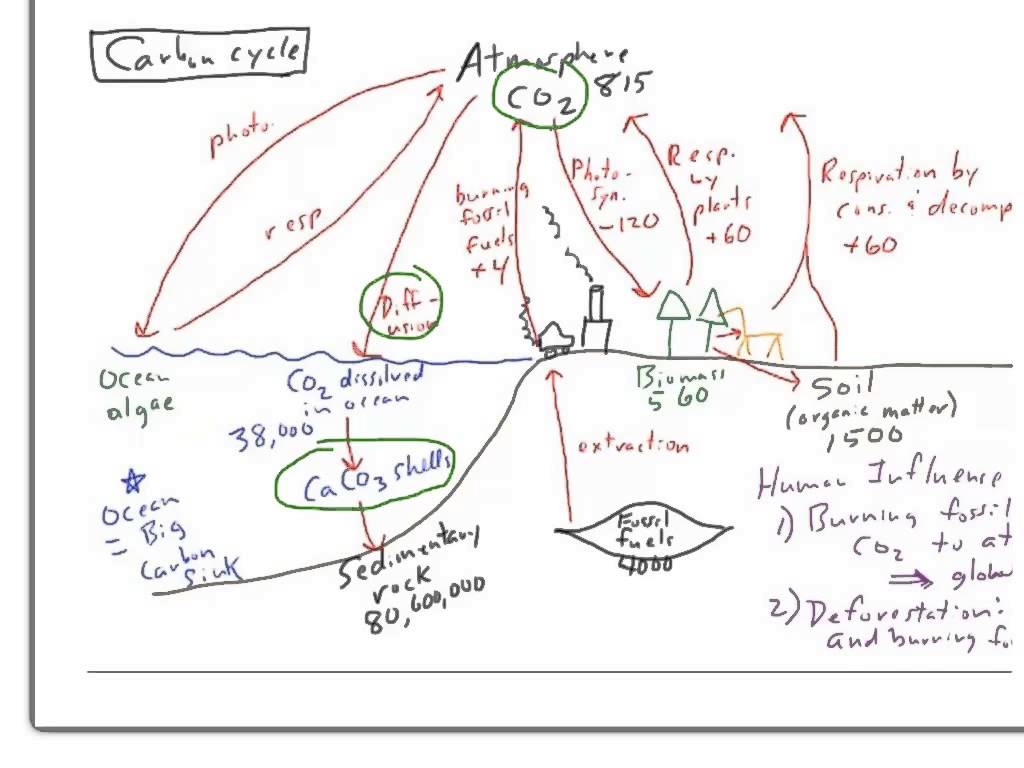 Carbon cycle
Atmosphere
CO2 815
photo.
resp
Diff-
usion
burning
fossil
fuels
+4
Photo-
syn.
-120
Resp.
by
plants
+60
Respiration by
cons. & decomp
+60
Ocean
algae
CO2 dissolved
in ocean
38,000
CaCO3 shells
Sedimentary
rock
80,600,000
Ocean
= Big
Carbon
Sink
extraction
Fossil
fuels
4000
Biomass
560
Soil
(organic matter)
1500
Human Influence
1) Burning fossil
CO2 to at
⇒ globa
2) Deforestation:
and burning fo